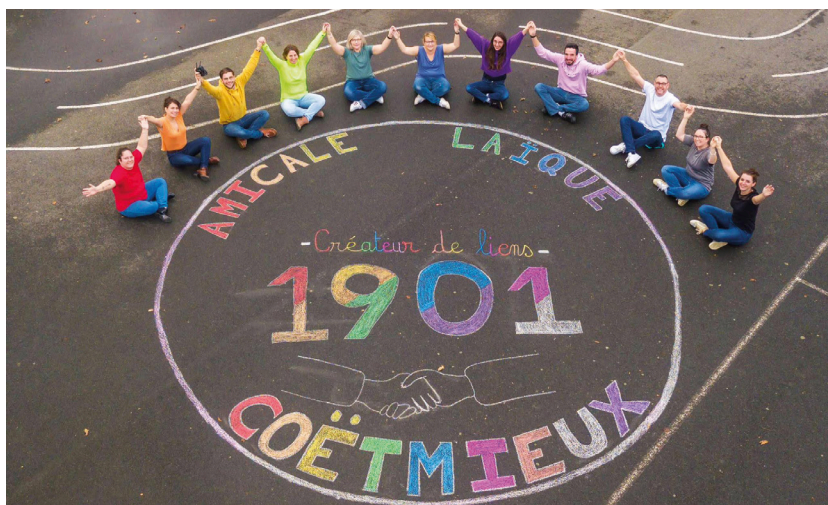 AMICALE LAÏQUE
-Créateur de liens-
1901
COËTMIEUX